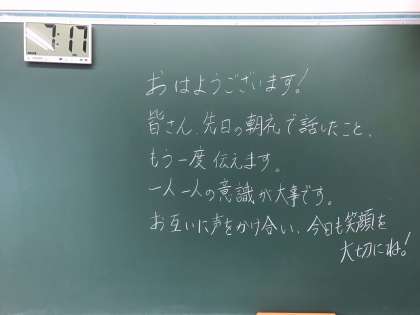 7:17
おはようございます!
皆さん、先日の朝礼で話したこと、
もう一度伝えます。
一人一人の意識が大事です。
お互いに声をかけ合い、今日も笑顔を
大切にね!